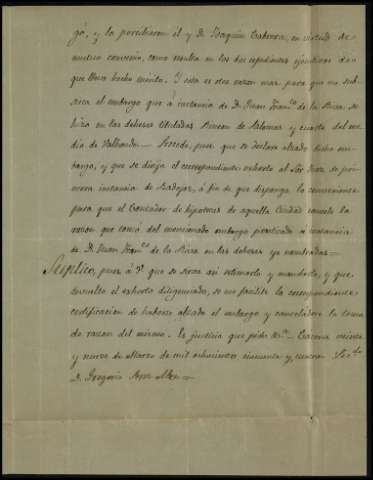 gó, y lo percibieron él y D. Joaquin Cabrera, en virtud de
mutuo convenio, como resulta en los dos espedientes ejecutivos de
que llevo hecho mérito. Y esta es otra razon mas para que no sub-
sista el embargo que á instancia de D. Juan Franco. de la Riva, se
hizo en las dehesas tituladas Rincon de Palomas y cuarto del me-
dio de Valhondo. Procede, pues que se declare alzado dicho em-
bargo, y que se dirija el correspondiente exhorto al Sór. Juez de pri-
mera instancia de Badajoz, á fin de que disponga lo conveniente
para que el Contador de hipotecas de aquella Ciudad cancele la
razon que tomó del mencionado embargo practicado á instancia
de D. Juan Franco. de la Riva en las dehesas ya nombradas =
Suplico, pues á V. que se sirva asi estimarlo y mandarlo, y que
devuelto el exhorto diligenciado, se me facilite la correspondiente
certificacion de haberse alzado el embargo y canceládose la toma
de razon del mismo. Es justicia que pido &a. Cáceres veinte
y nueve de Marzo de mil ochocientos cincuenta y
D. Gregorio